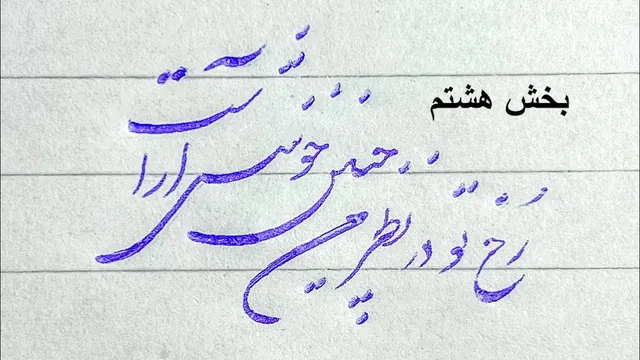 بخش هشتم
رُخ تو در نظر من چنین خوشش آراست